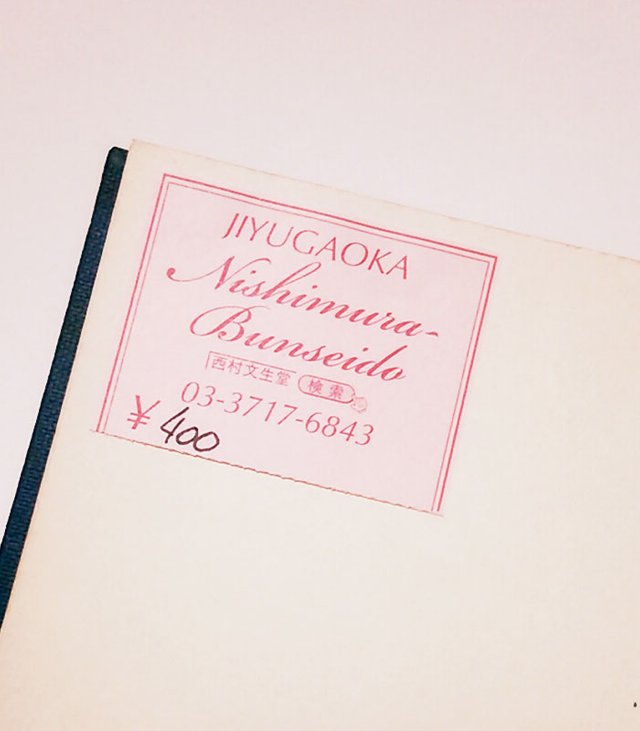 JIYUGAOKA
Nishimura-
Bunseido
西村文生堂 検索
03-3717-6843
¥400